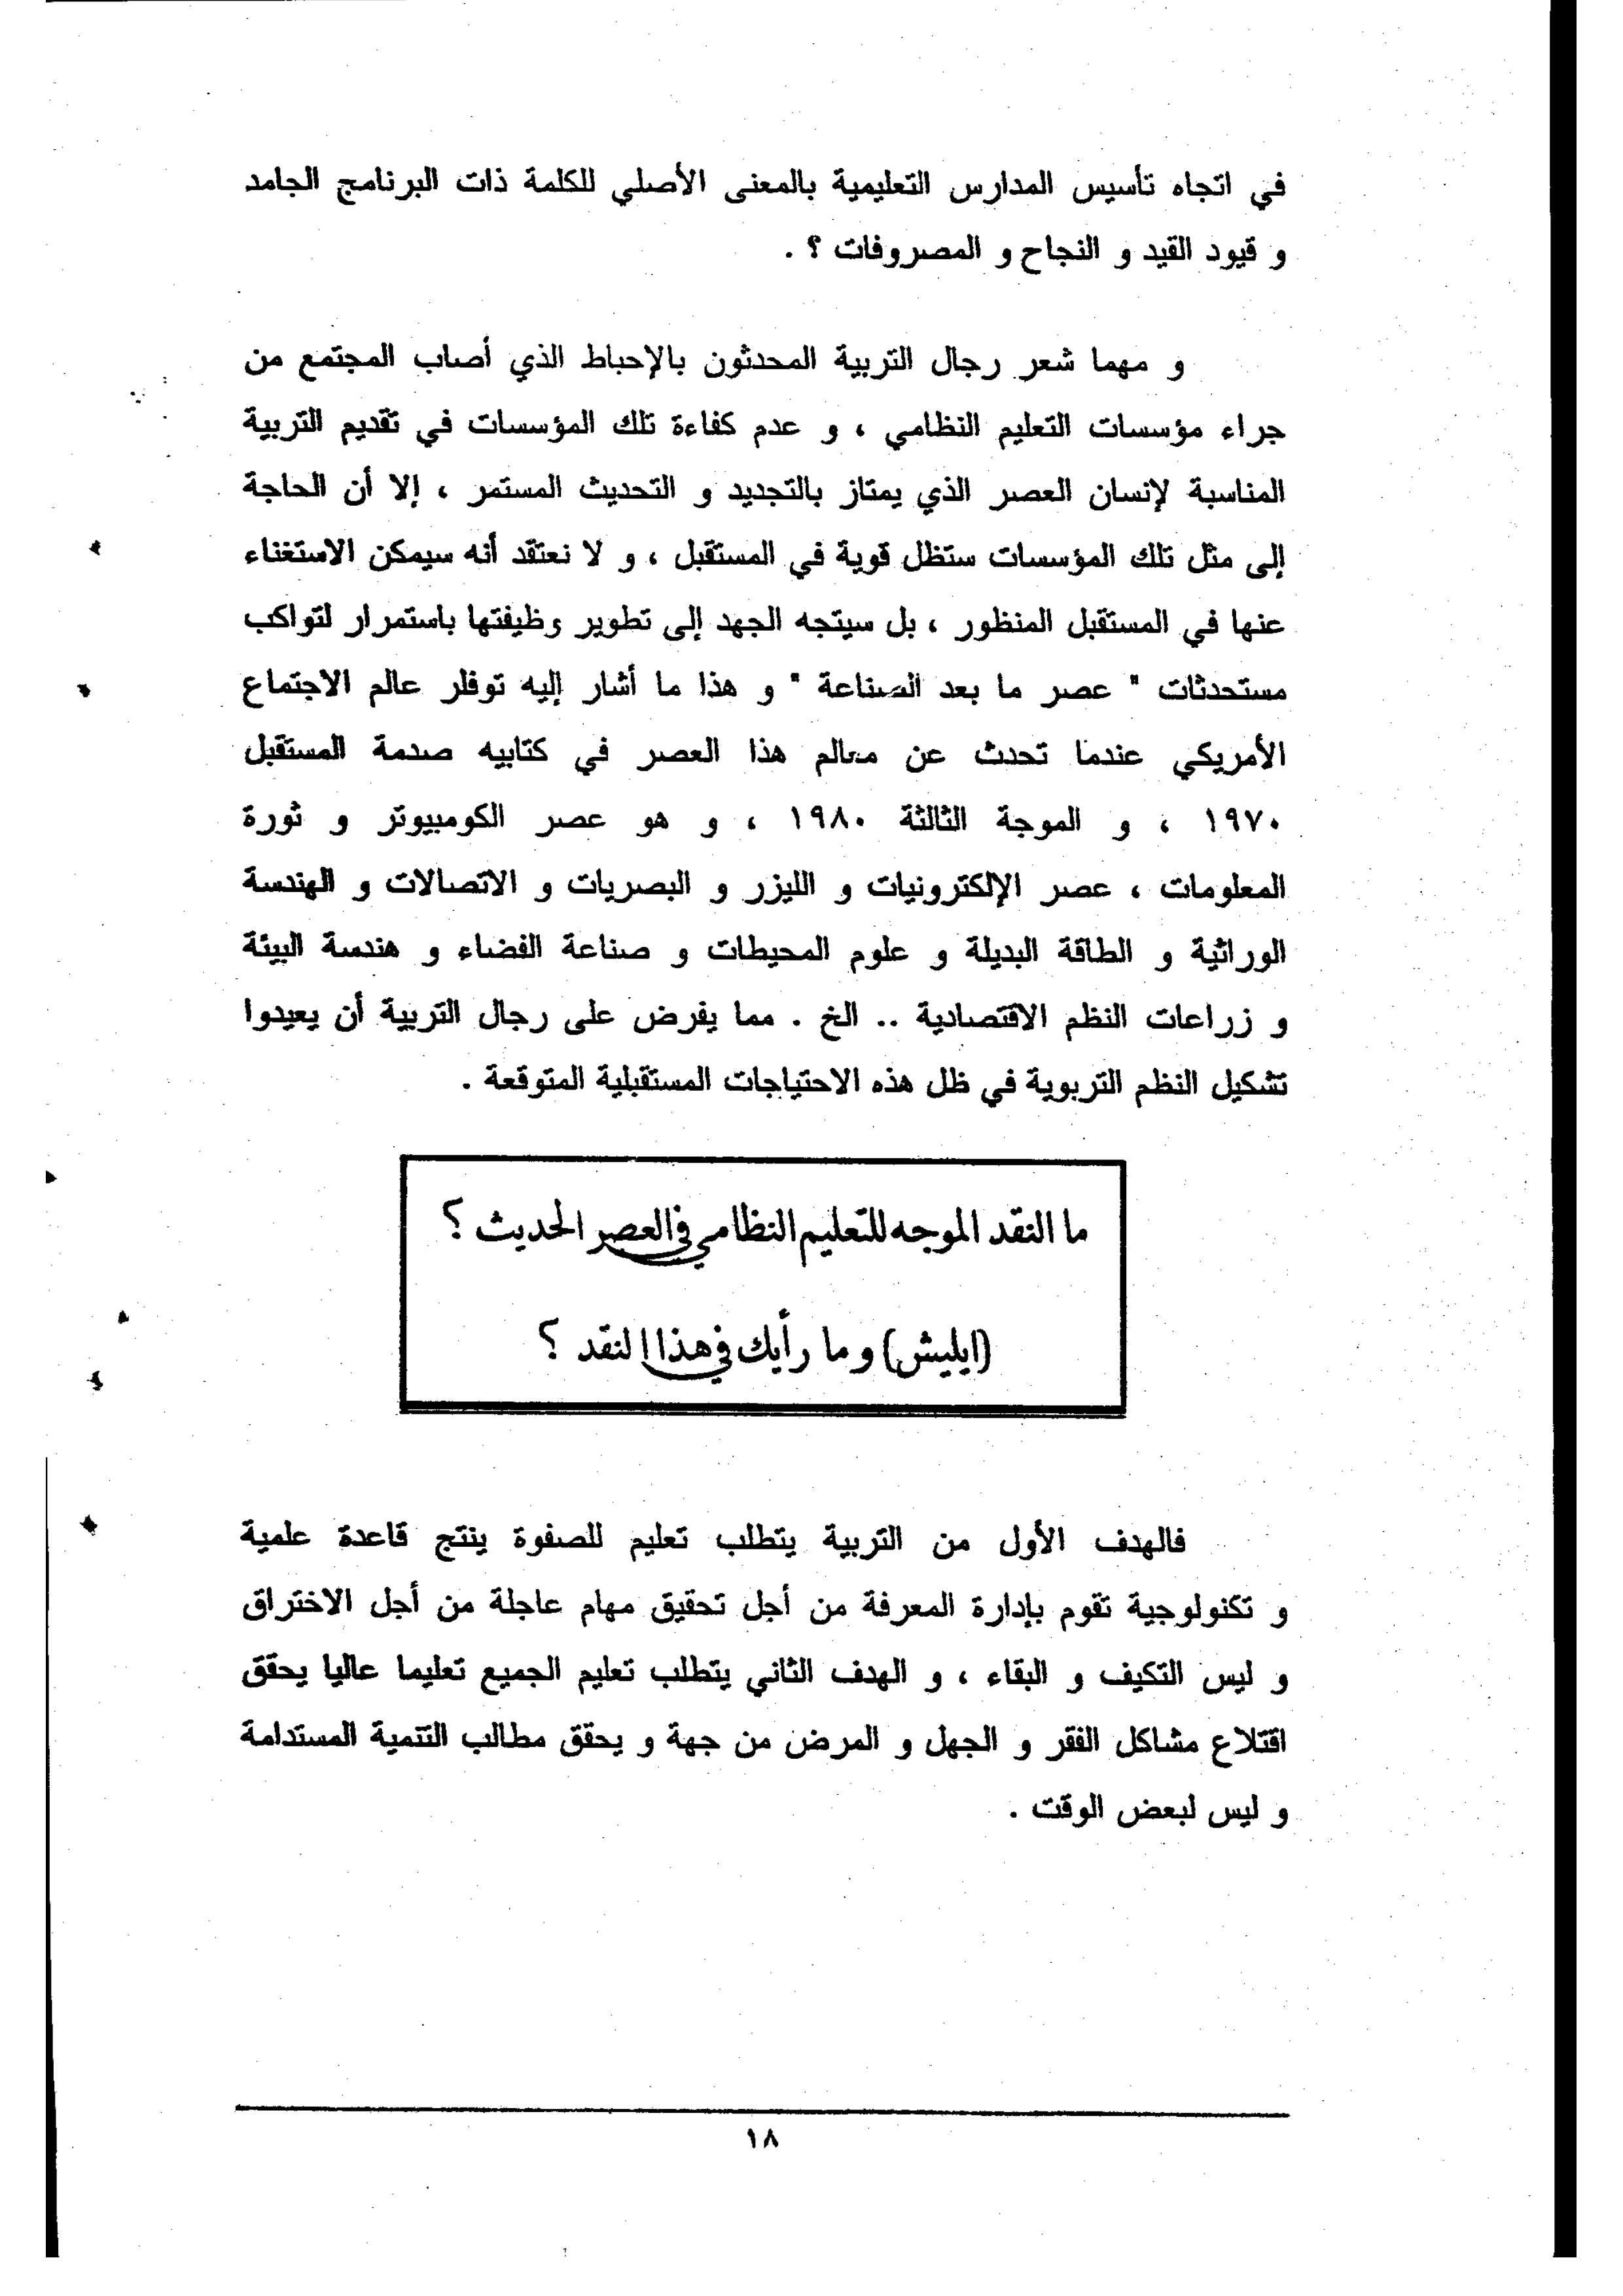 في اتجاه تأسيس المدارس التعليمية بالمعنى الأصلي للكلمة ذات البرنامج الجامد
و قيود القيد و النجاح و المصروفات ؟ .
و مهما شعر رجال التربية المحدثون بالإحباط الذي أصاب المجتمع من
جراء مؤسسات التعليم النظامي ، و عدم كفاءة تلك المؤسسات في تقديم التربية
المناسبة لإنسان العصر الذي يمتاز بالتجديد و التحديث المستمر ، إلا أن الحاجة
إلى مثل تلك المؤسسات ستظل قوية في المستقبل ، و لا نعتقد أنه سيمكن الاستغناء
عنها في المستقبل المنظور ، بل سيتجه الجهد إلى تطوير وظيفتها باستمرار لتواكب
مستحدثات " عصر ما بعد الصناعة " و هذا ما أشار إليه توفلر عالم الاجتماع
الأمريكي عندما تحدث عن معالم هذا العصر في كتابيه صدمة المستقبل
١٩٧٠ ، و الموجة الثالثة ١٩٨٠ ، و هو عصر الكومبيوتر و ثورة
المعلومات ، عصر الإلكترونيات و الليزر و البصريات و الاتصالات و الهندسة
الوراثية و الطاقة البديلة و علوم المحيطات و صناعة الفضاء و هندسة البيئة
و زراعات النظم الاقتصادية .. الخ . مما يفرض على رجال التربية أن يعيدوا
تشكيل النظم التربوية في ظل هذه الاحتياجات المستقبلية المتوقعة .
ما النقد الموجه للتعليم النظامي في العصر الحديث ؟
(ايليش) و ما رأيك في هذا النقد ؟
فالهدف الأول من التربية يتطلب تعليم للصفوة ينتج قاعدة علمية
و تكنولوجية تقوم بإدارة المعرفة من أجل تحقيق مهام عاجلة من أجل الاختراق
و ليس التكيف و البقاء ، و الهدف الثاني يتطلب تعليم الجميع تعليما عاليا يحقق
اقتلاع مشاكل الفقر و الجهل و المرض من جهة و يحقق مطالب التنمية المستدامة
و ليس لبعض الوقت .
١٨